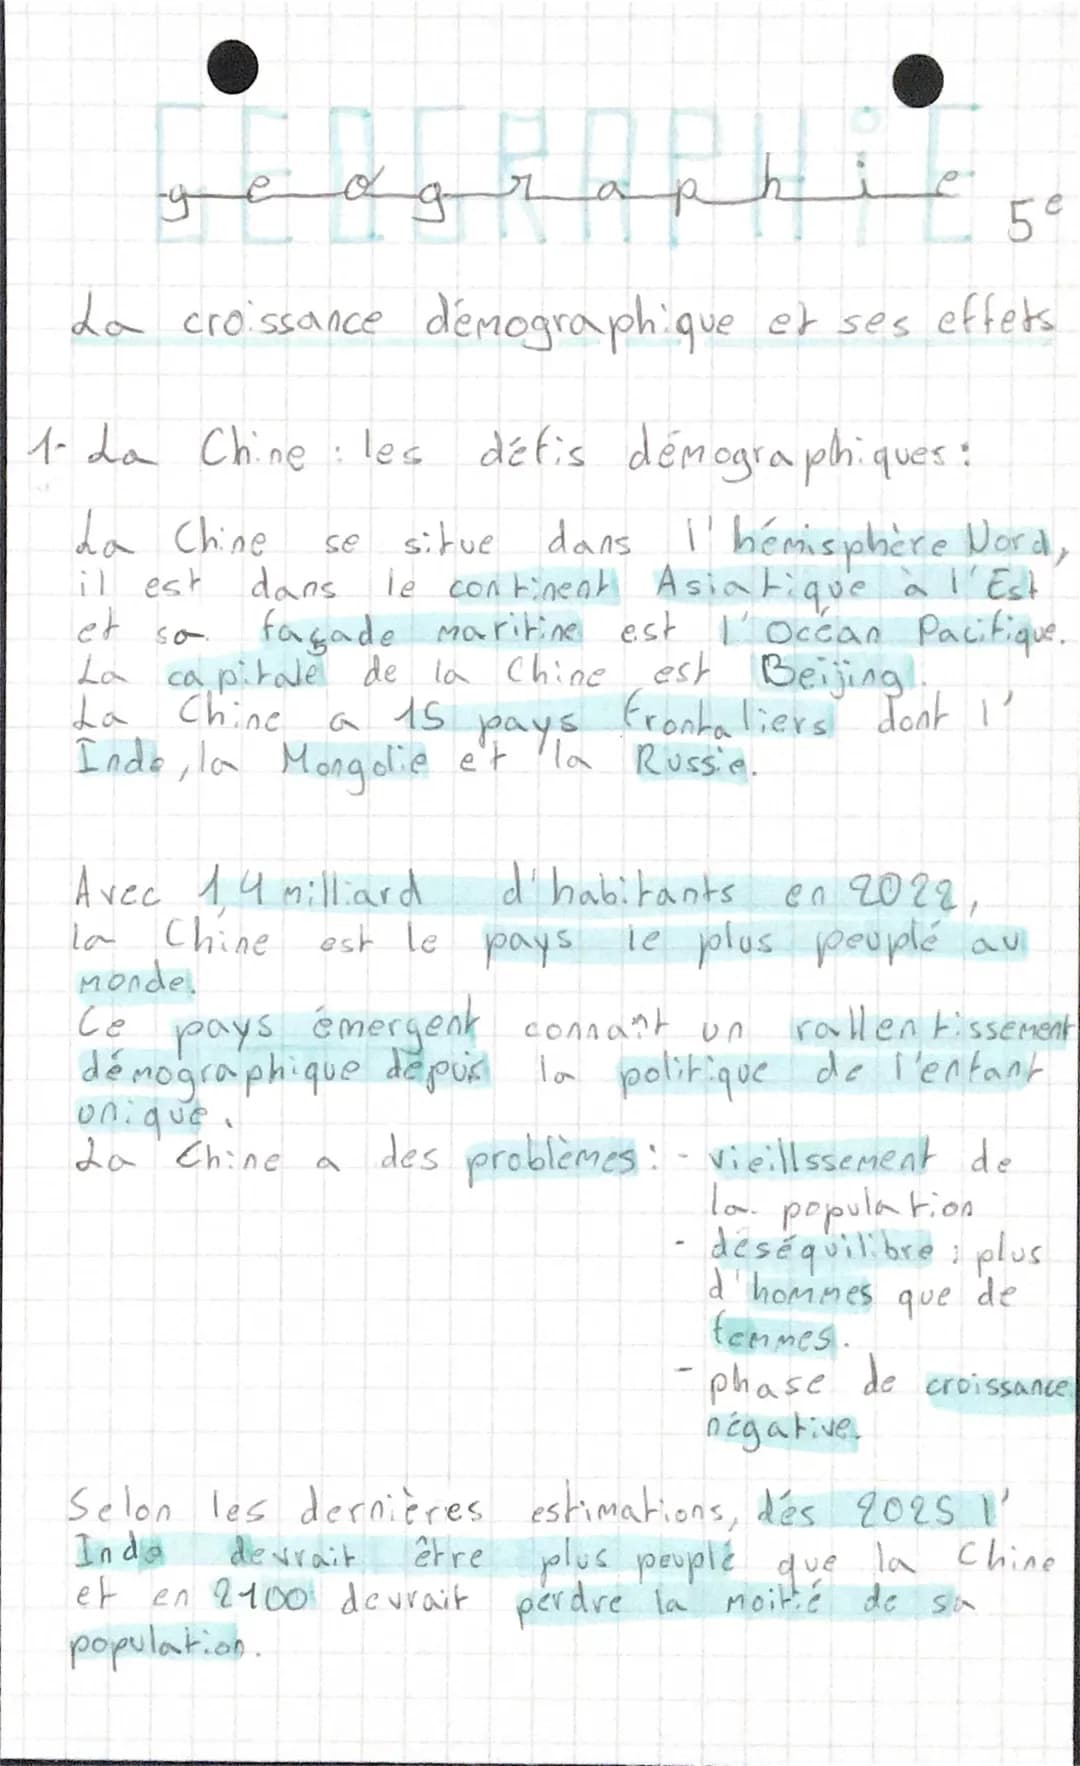 GEOGRAPHIE
geographie
5e
La croissance démographique et ses effets
1- La Chine : les défis démographiques :
La Chine se situe dans l'hémisphère Nord,
il est dans le continent Asiatique à l'Est
et sa façade maritime est l'Océan Pacifique.
La capitale de la Chine est Beijing.
La Chine a 15 pays frontaliers dont l'
Inde, la Mongolie et la Russie.
Avec 1,4 milliard d'habitants en 2022,
la Chine est le pays le plus peuplé au
monde.
Ce pays émergent connaît un rallentissement
démographique depuis la politique de l'enfant
unique.
La Chine a des problèmes : - vieillssement de
la population
- déséquilibre : plus
d'hommes que de
femmes.
- phase de croissance
négative.
Selon les dernières estimations, dés 2025 l'
Inde devrait être plus peuplé que la Chine
et en 2100 devrait perdre la moitié de sa
population.